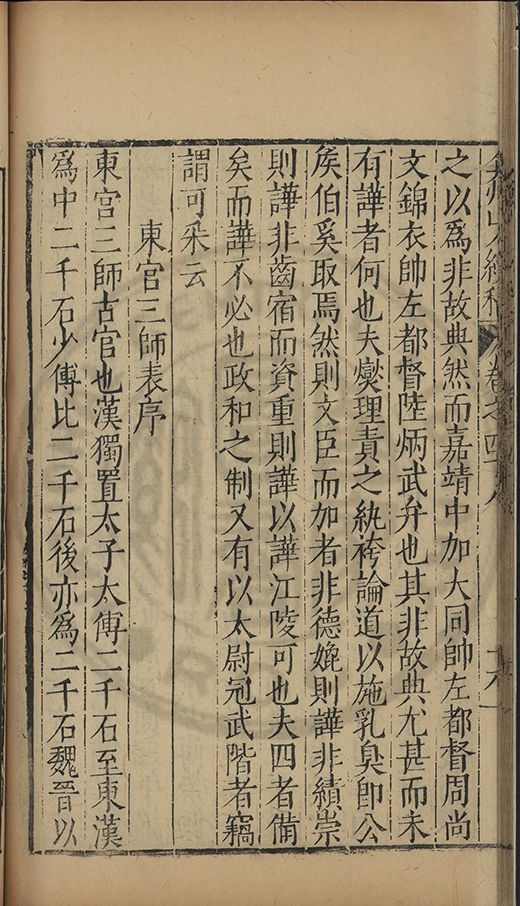 弇州山人續稿 卷之四十八 十八
之以爲非故典然而嘉靖中加大同帥左都督周尚
文錦衣帥左都督陸炳武弁也其非故典尤甚而未
有譁者何也夫燮理責之紈袴論道以施乳臭卽公
矦伯奚取焉然則文臣而加者非德媲則譁非績崇
則譁非齒宿而資重則譁以譁江陵可也夫四者備
矣而譁不必也政和之制又有以太尉冠武階者竊
謂可采云
東宫三師表序
東宫三師古官也漢獨置太子太傅二千石至東漢
爲中二千石少傅比二千石後亦爲二千石魏晉以